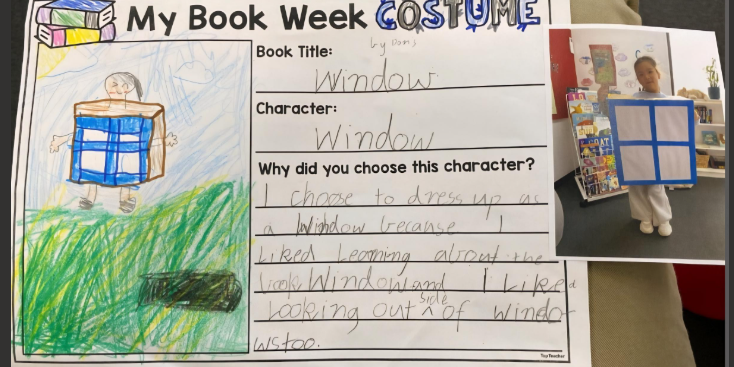 My Book Week COSTUME
by Doris
Book Title:
Window
Character:
Window
Why did you choose this character?
I choose to dress up as
a Window because I
Liked Learning about the
book Window and I Liked
Looking out side of windo
ws too.
Top Teacher